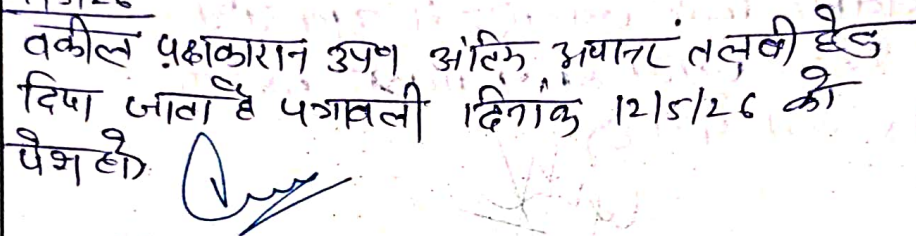 वकील पक्षकारान उप० अंतिम अवसर तलबी हेतु
दिया जाता है पत्रावली दिनांक 12/5/26 को
पेश हो